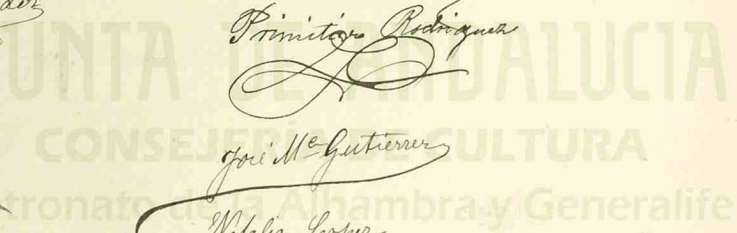 Primitivo Rodriguez
JUNTA DE ANDALUCIA
CONSEJERÍA DE CULTURA
José Mª Gutiérrez
Patronato de la Alhambra y Generalife